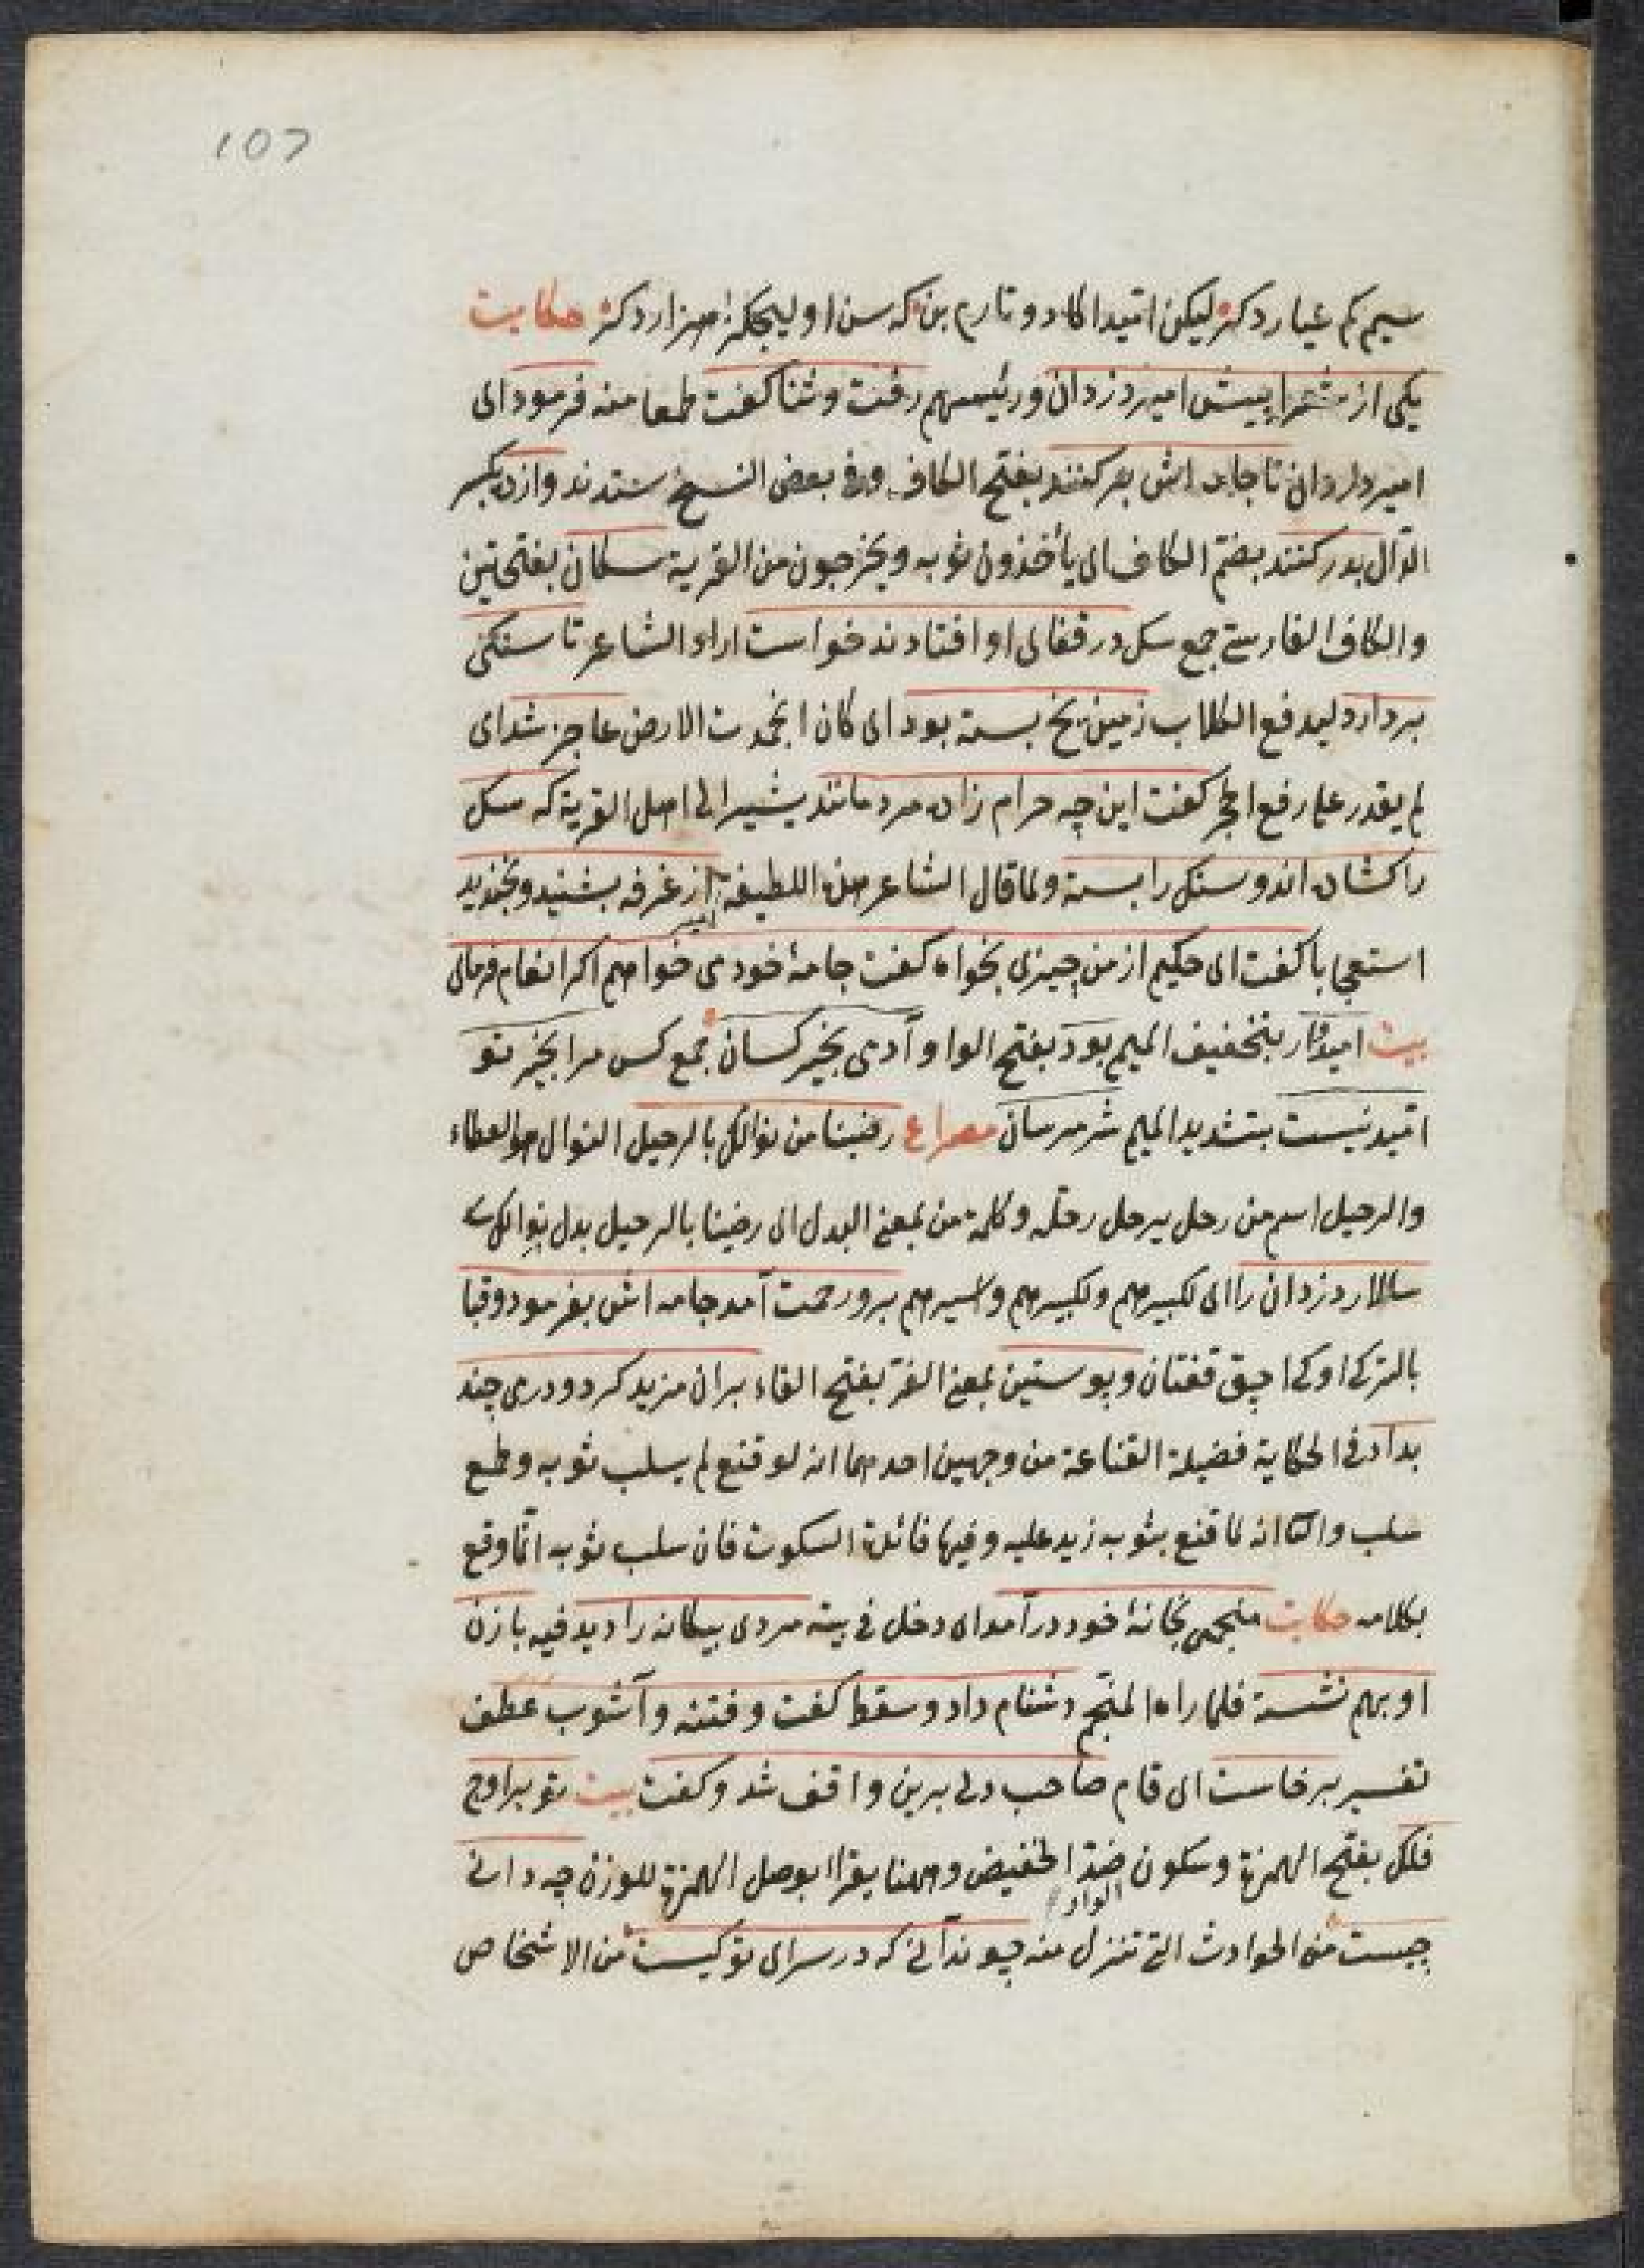 107
سیم کم عیار دکر لیکن اتیدا کا دوتارم بن که سن او لیجکز هزار دکر حکایت
یکی از شعرا پیش امیر دزدان ورئیسهم رفت وثنا کفت طمعا منه فرمود ای
امیر دزدان تا جامه اش بر کنند بفتح الکاف وفی بعض النسخ ستدند وازده بکسر
الدال بدر کنند بضم الکاف ای یأخذون ثوبه ویخرجون من القریة سکان بفتحتین
والکاف الفارسی جمع سک در قفای او افتادند خواست اراد الشاعر تا سنکی
بردارد لیدفع الکلاب زمین یخ بسته بود ای کان انجمدت الارض عاجز شد ای
لم یقدر علی رفع الحجر کفت این چه حرام زاده مردمانند یشیر الی اهل القریة که سک
را کشاده اند وسنک را بسته ولما قال الشاعر هذه اللطیفة امیر از غرفه بشنید وبخندید
استعجابا کفت ای حکیم از من چیزی بخواه کفت جامۀ خود می خواهم اکر انعام فرمای
بیت امیدوار بتخفیف المیم بود بفتح الواو آدمی بخیر کسان جمع کس مرا بخیر تو
اتید نیست بتشدید المیم شر مرسان مصراع رضینا من نوالک بالرحیل النوال هو العطاء
والرحیل اسم من رحل یرحل رحلة وکلمة من بمعنی البدل ای رضینا بالرحیل بدل نوالک
سالار دزدان را ای لکبیرهم ولکبیرهم ولاسیرهم برو رحمت آمد جامه اش بفرمود وقبا
بالترکی اوکی اچق قفتان وپوستین بمعنی الفرو بفتح الفاء بران مزید کرد ودرمی چند
بداد فی الحکایة فضیلة القناعة من وجهین احدهما انه لو قنع لم یسلب ثوبه وطمع
سلب والثا انه لما قنع بثوبه زید علیه وفیها فائدة السکوت فان سلب ثوبه انما وقع
بکلامه حکایت منجمی بخانۀ خود درآمد ای دخل فی بیته مردی بیکانه را دید فیه با زن
او بهم نشسته فلما راه المنجم دشنام داد وسقط کفت وفتنه وآشوب عطف
تفسیر برخاست ای قام صاحب دلی برین واقف شد وکفت بیت تو بر اوج
فلک بفتح الهمزة وسکون الواو ضد الحضیض وههنا یقرأ بوصل الهمزة للوزن چه دانی
چیست من الحوادث التی تنزل منه چو ندانی که در سرای تو کیست من الاشخاص